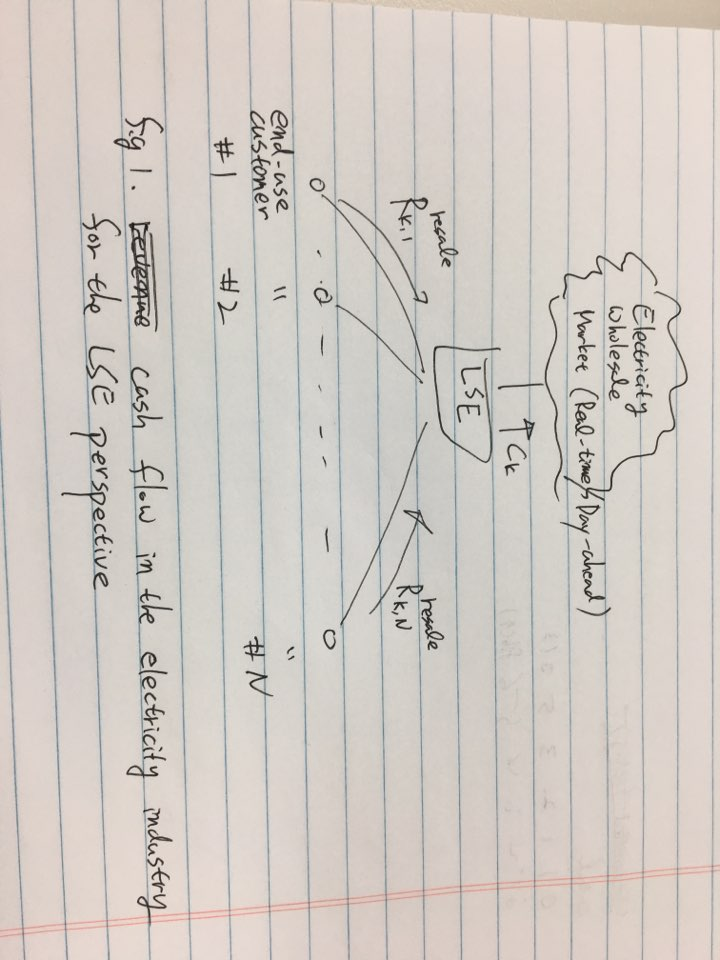 Electricity
Wholesale
Market (Real-time/Day-ahead)
↑ Ck
LSE
R resale k,1
R resale k,N
end-use
customer
"
"
#1
#2
#N
fig 1. cash flow in the electricity industry
for the LSE perspective